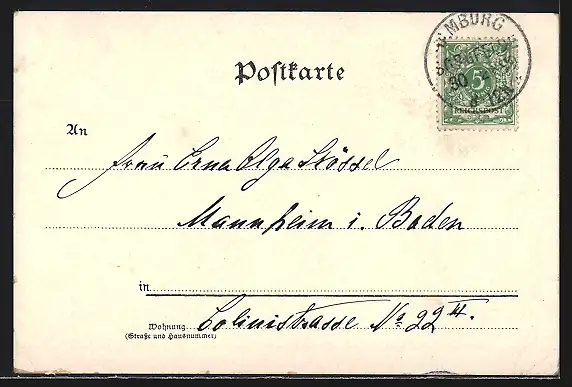 MBURG
30
5
REICHSPOST
Postkarte
An
Frau Erna Olga Stössel
Mannheim i. Baden
in
Wohnung
(Straße und Hausnummer)
Colinistrasse No 22 II.